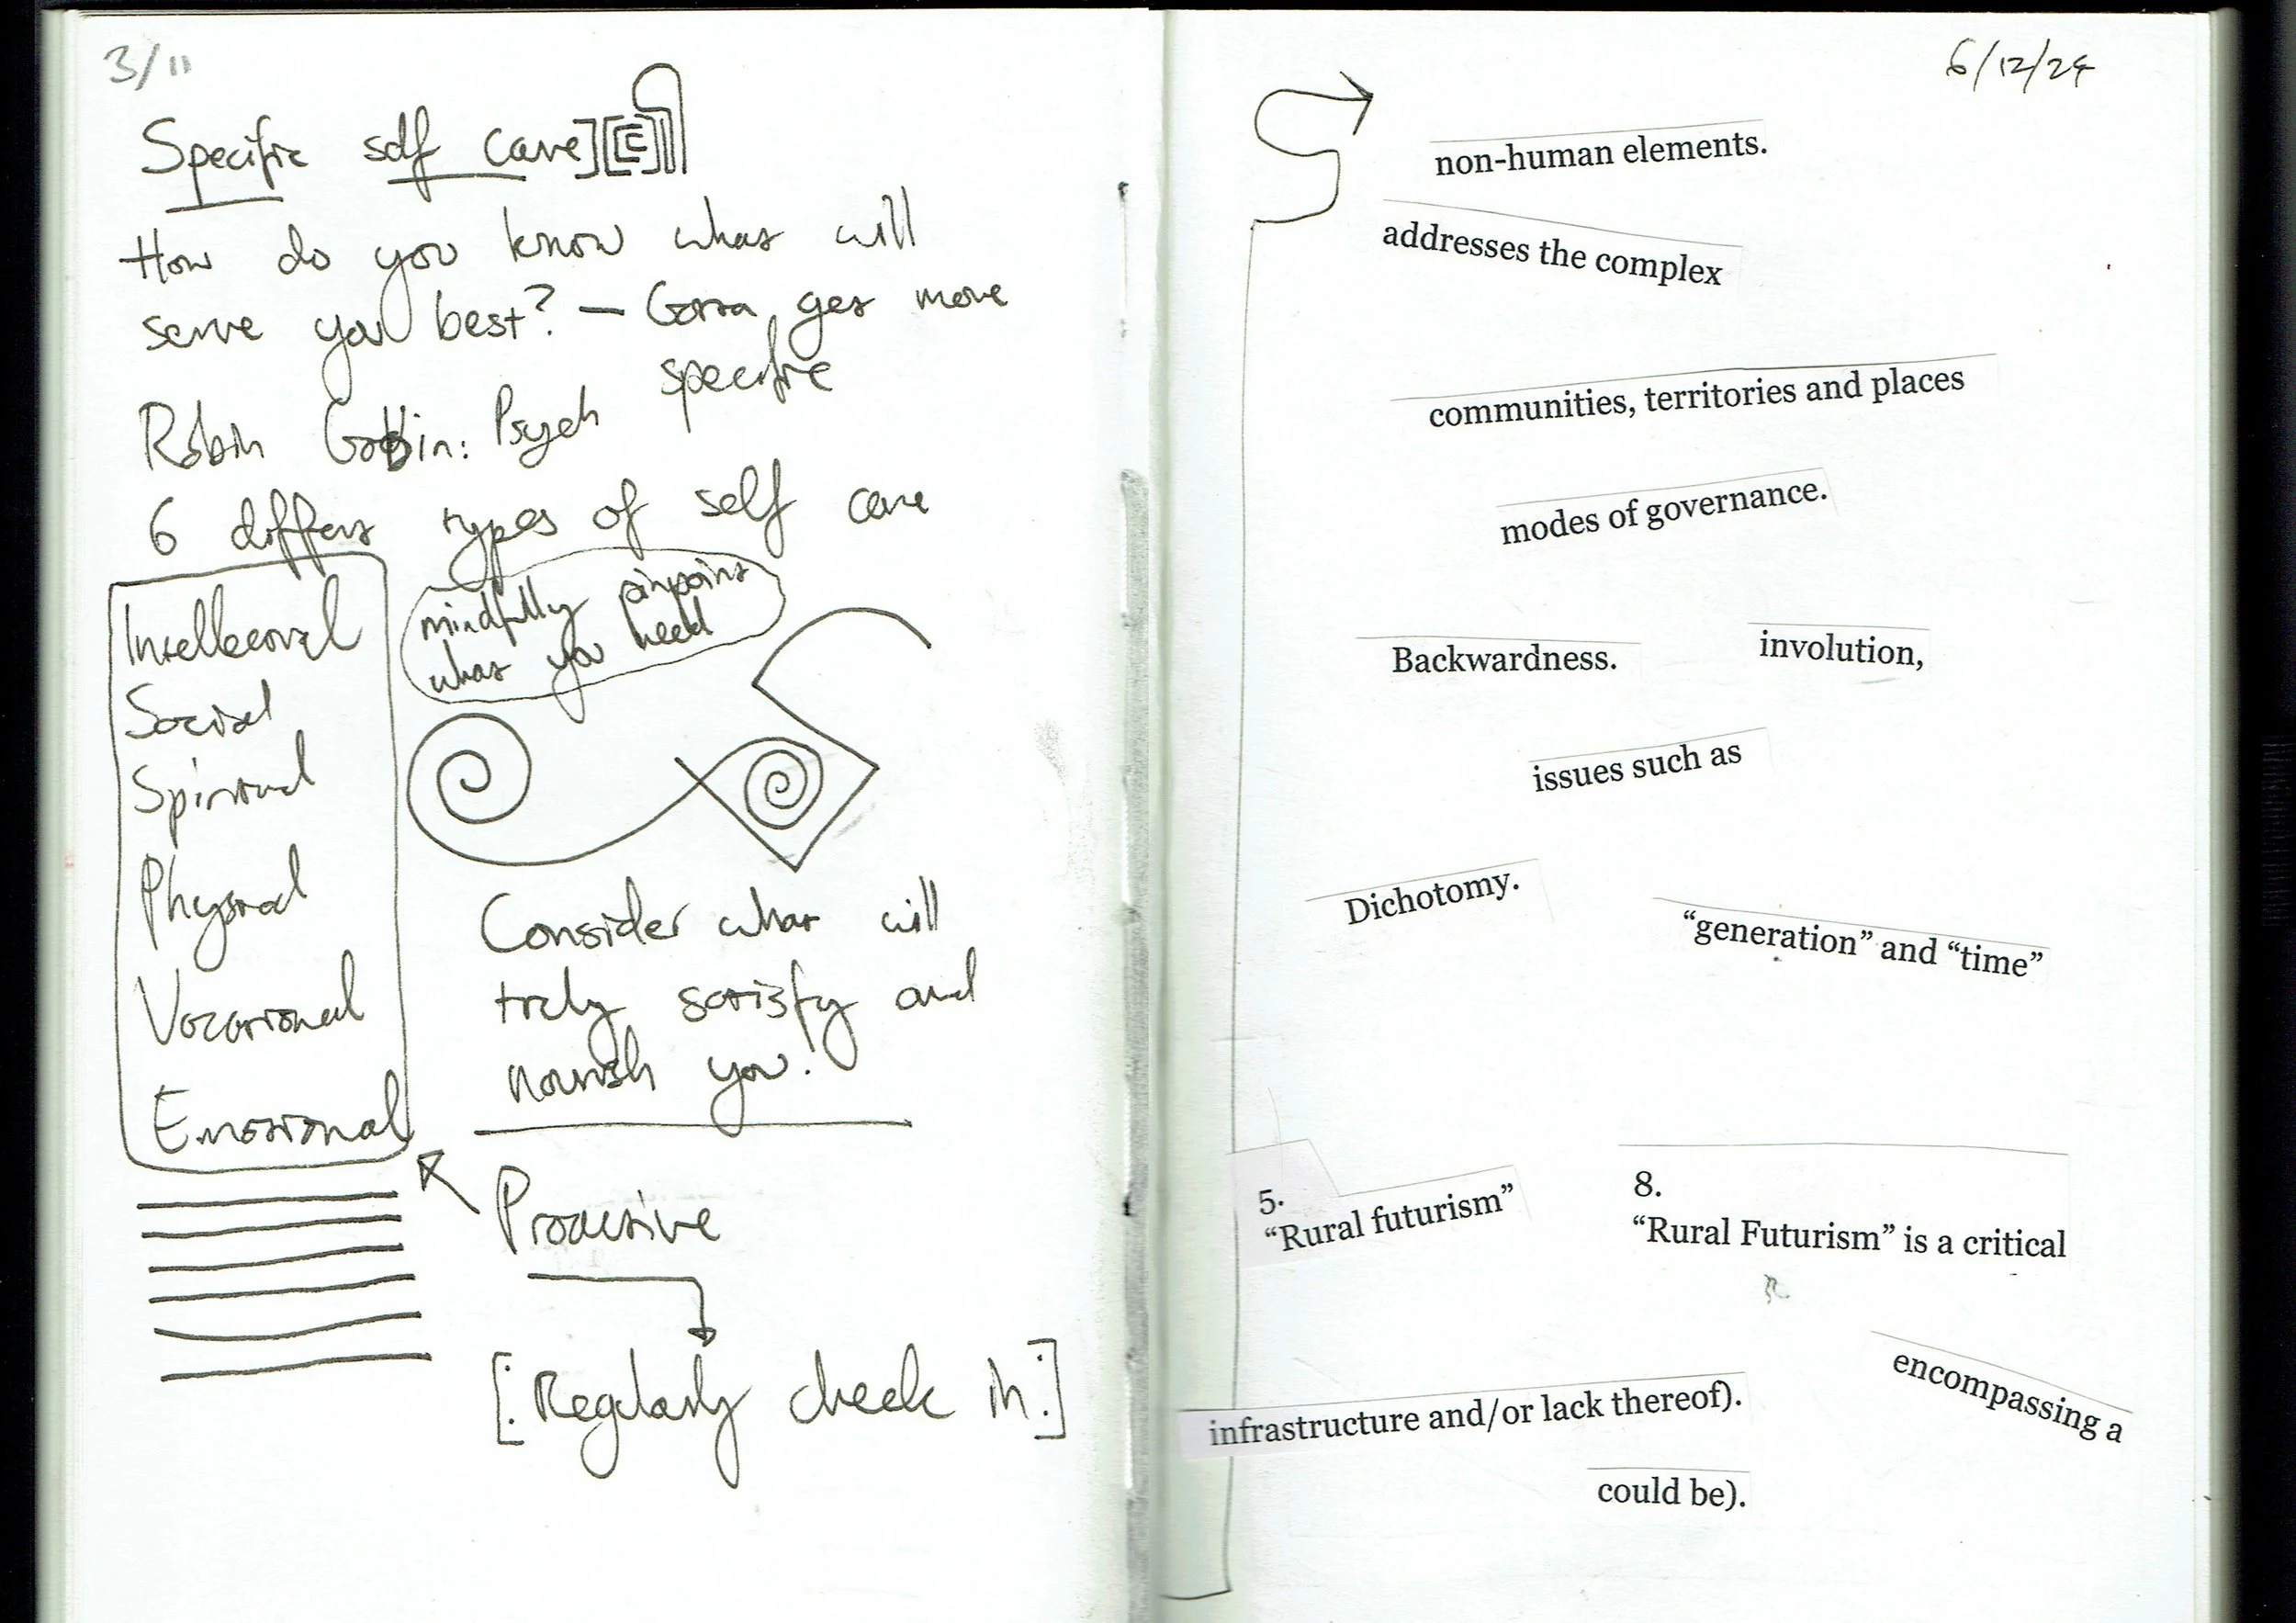 3/11
Specific self care
How do you know what will
serve you best? – Gotta get more
specific
Robin Gobbin: Psych
6 differt types of self care
Intellectual
Social
Spiritual
Physical
Vocational
Emotional
mindfully pinpoint
what you need
Consider what will
truly satisfy and
nourish you!
Proactive
[: Regularly check in :]
6/12/24
non-human elements.
addresses the complex
communities, territories and places
modes of governance.
Backwardness.
involution,
issues such as
Dichotomy.
“generation” and “time”
5.
“Rural futurism”
8.
“Rural Futurism” is a critical
encompassing a
infrastructure and/or lack thereof).
could be).